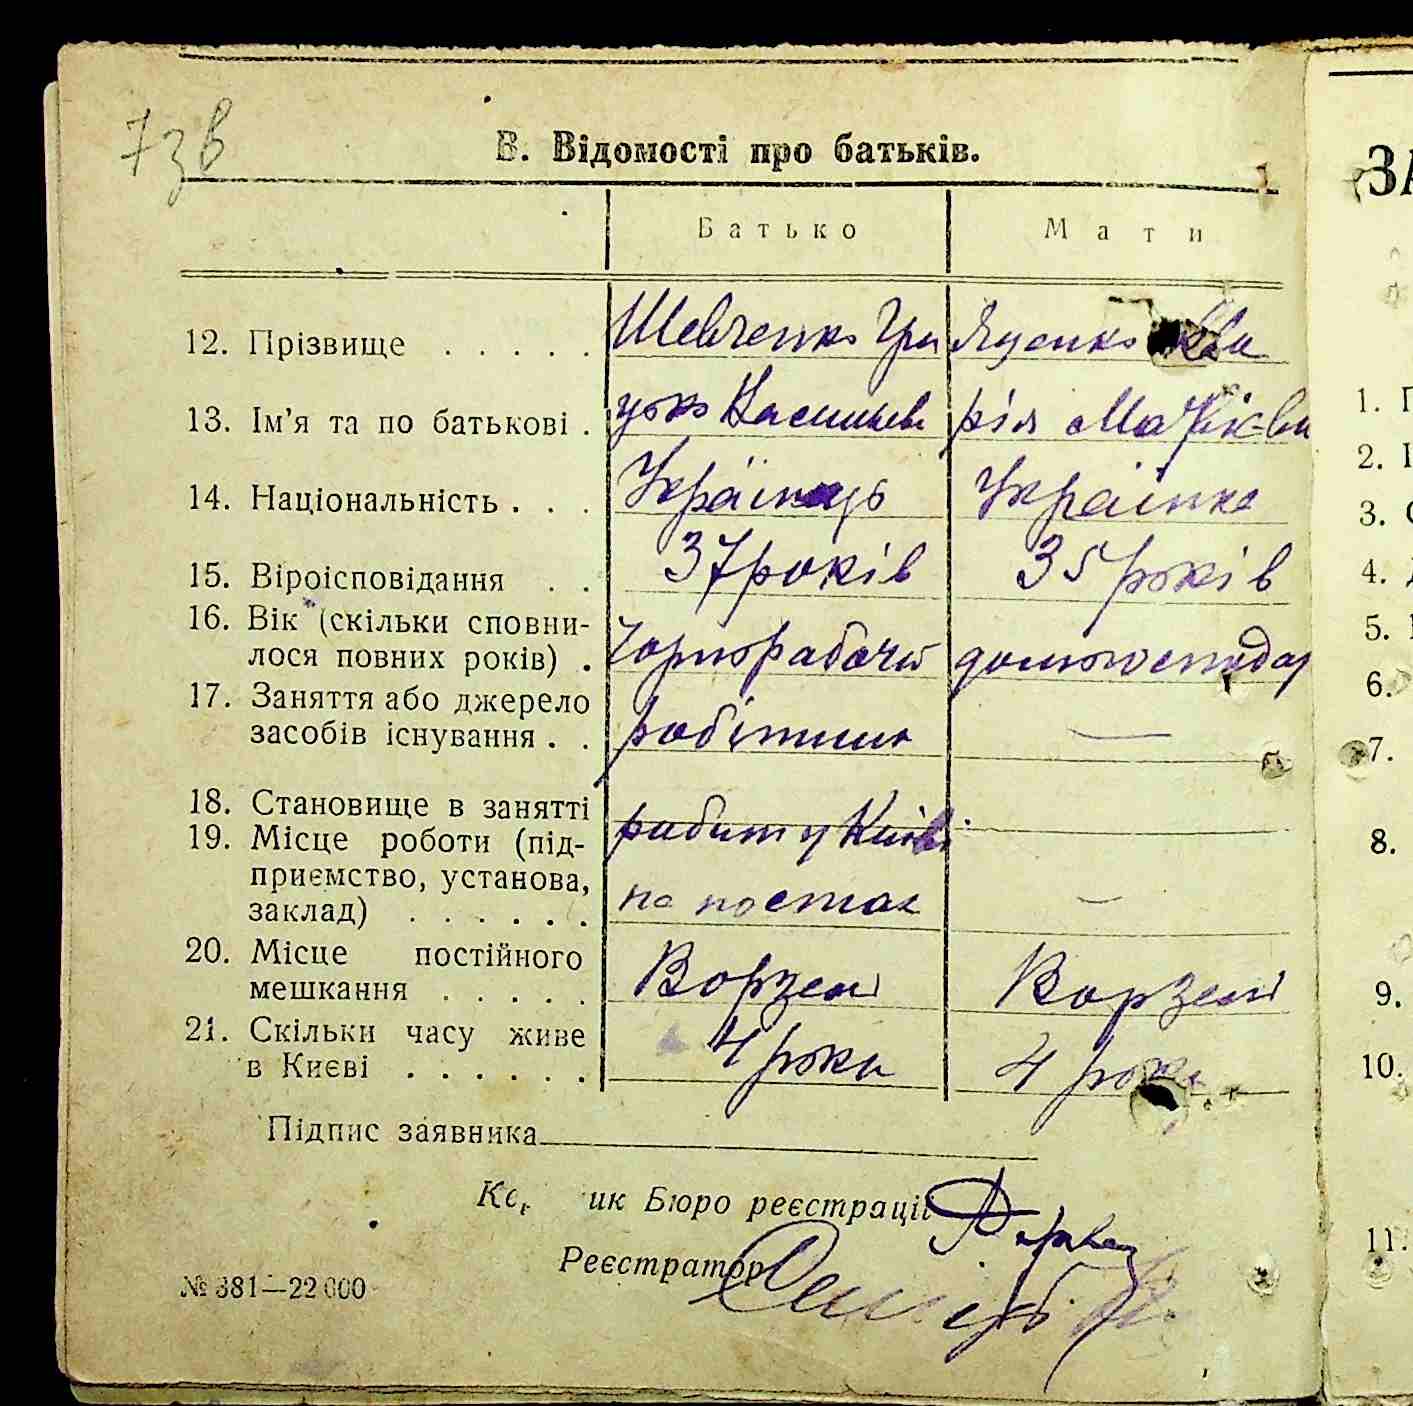 7зв
В. Відомості про батьків.
Батько Мати
12. Прізвище . . . . . Шевченко Гри Яценко Ма
13. Ім'я та по батькові . цько Васильов рія
14. Національність . . . Українець Українка
15. Віроісповідання . . 37 років 35 років
16. Вік (скільки сповни-
лося повних років) . чорнорабочий домогосподар
17. Заняття або джерело
засобів існування . . робітник —
18. Становище в занятті
19. Місце роботи (під- работ у Київі
приємство, установа,
заклад) . . . . . . на —
20. Місце постійного
мешкання . . . . . Ворзель Ворзель
21. Скільки часу живе
в Києві . . . . . . 4 роки 4 роки
Підпис заявника
ик Бюро реєстрації
Реєстратор
№ 381—22 000
ЗА
1. П
2. І
3. С
4. Д
5.
6.
7.
8.
9.
10.
11.